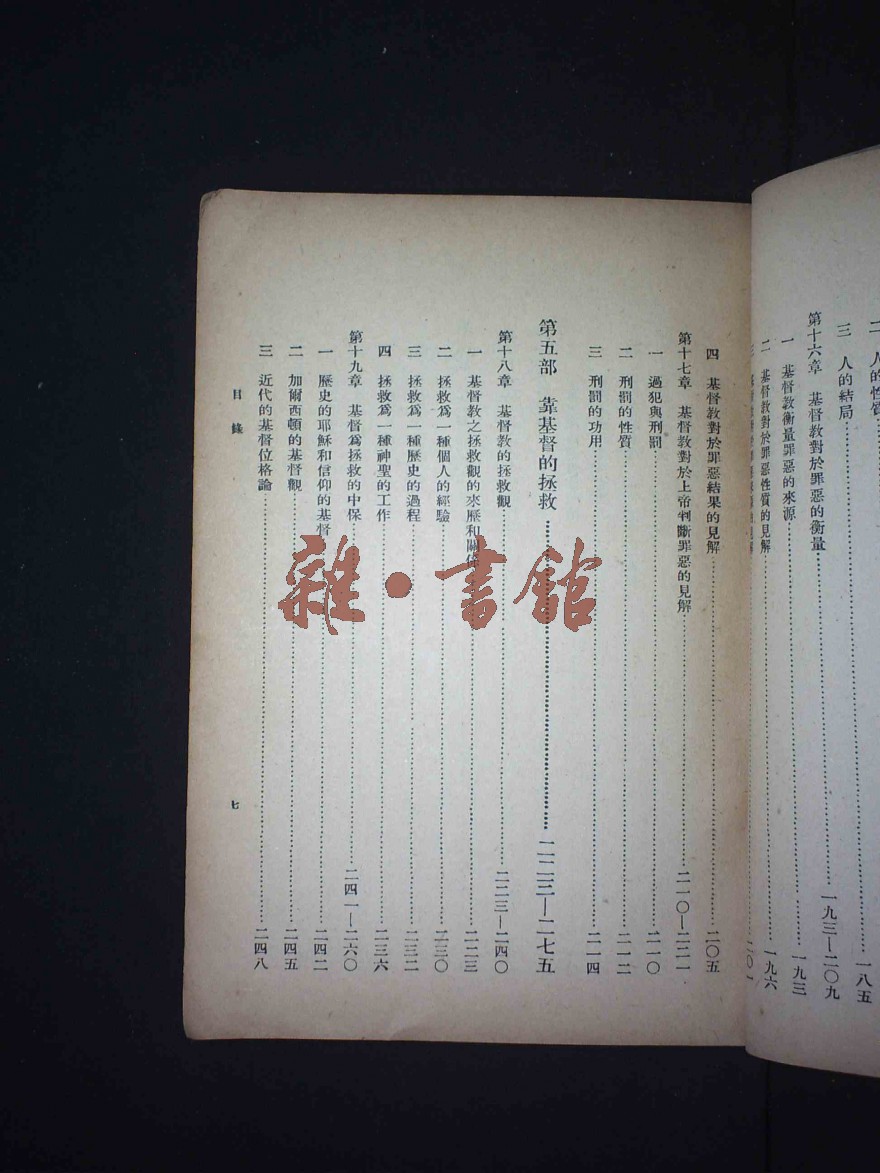 二 人的性質
三 人的結局……一八五
第十六章 基督教對於罪惡的衡量……一九三—二〇九
一 基督教衡量罪惡的來源……一九三
二 基督教對於罪惡性質的見解……一九六
四 基督教對於罪惡結果的見解……二〇五
第十七章 基督教對於上帝判斷罪惡的見解……二一〇—二二一
一 過犯與刑罰……二一〇
二 刑罰的性質……二一二
三 刑罰的功用……二一四
第五部 靠基督的拯救……二二三—二七五
第十八章 基督教的拯救觀……二二三—二四〇
一 基督教之拯救觀的來歷和關係……二二三
二 拯救爲一種個人的經驗……二三〇
三 拯救爲一種歷史的過程……二三二
四 拯救爲一種神聖的工作……二三六
第十九章 基督爲拯救的中保……二四一—二六〇
一 歷史的耶穌和信仰的基督……二四二
二 加爾西頓的基督觀……二四五
三 近代的基督位格論……二四八
目錄
七
雜·書館